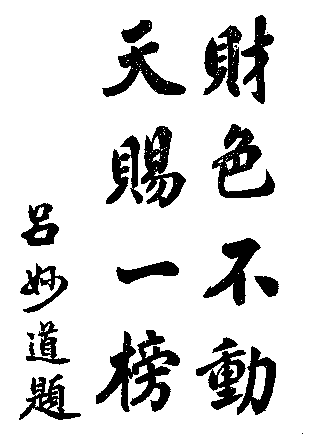 財色不動
天賜一榜
呂妙道題